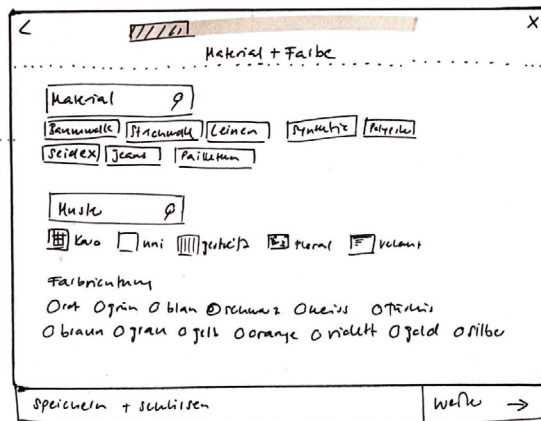 Material + Farbe
Material
Baumwolle Strickwolle Leinen Synthetix Polyester
Seidex Jeans Pailletten
Muster
Karo uni gestreift floral velour
Farbrichtung
rot grün blau schwarz weiss türkis
braun grau gelb orange violett gold silber
speichern + schliessen weiter →